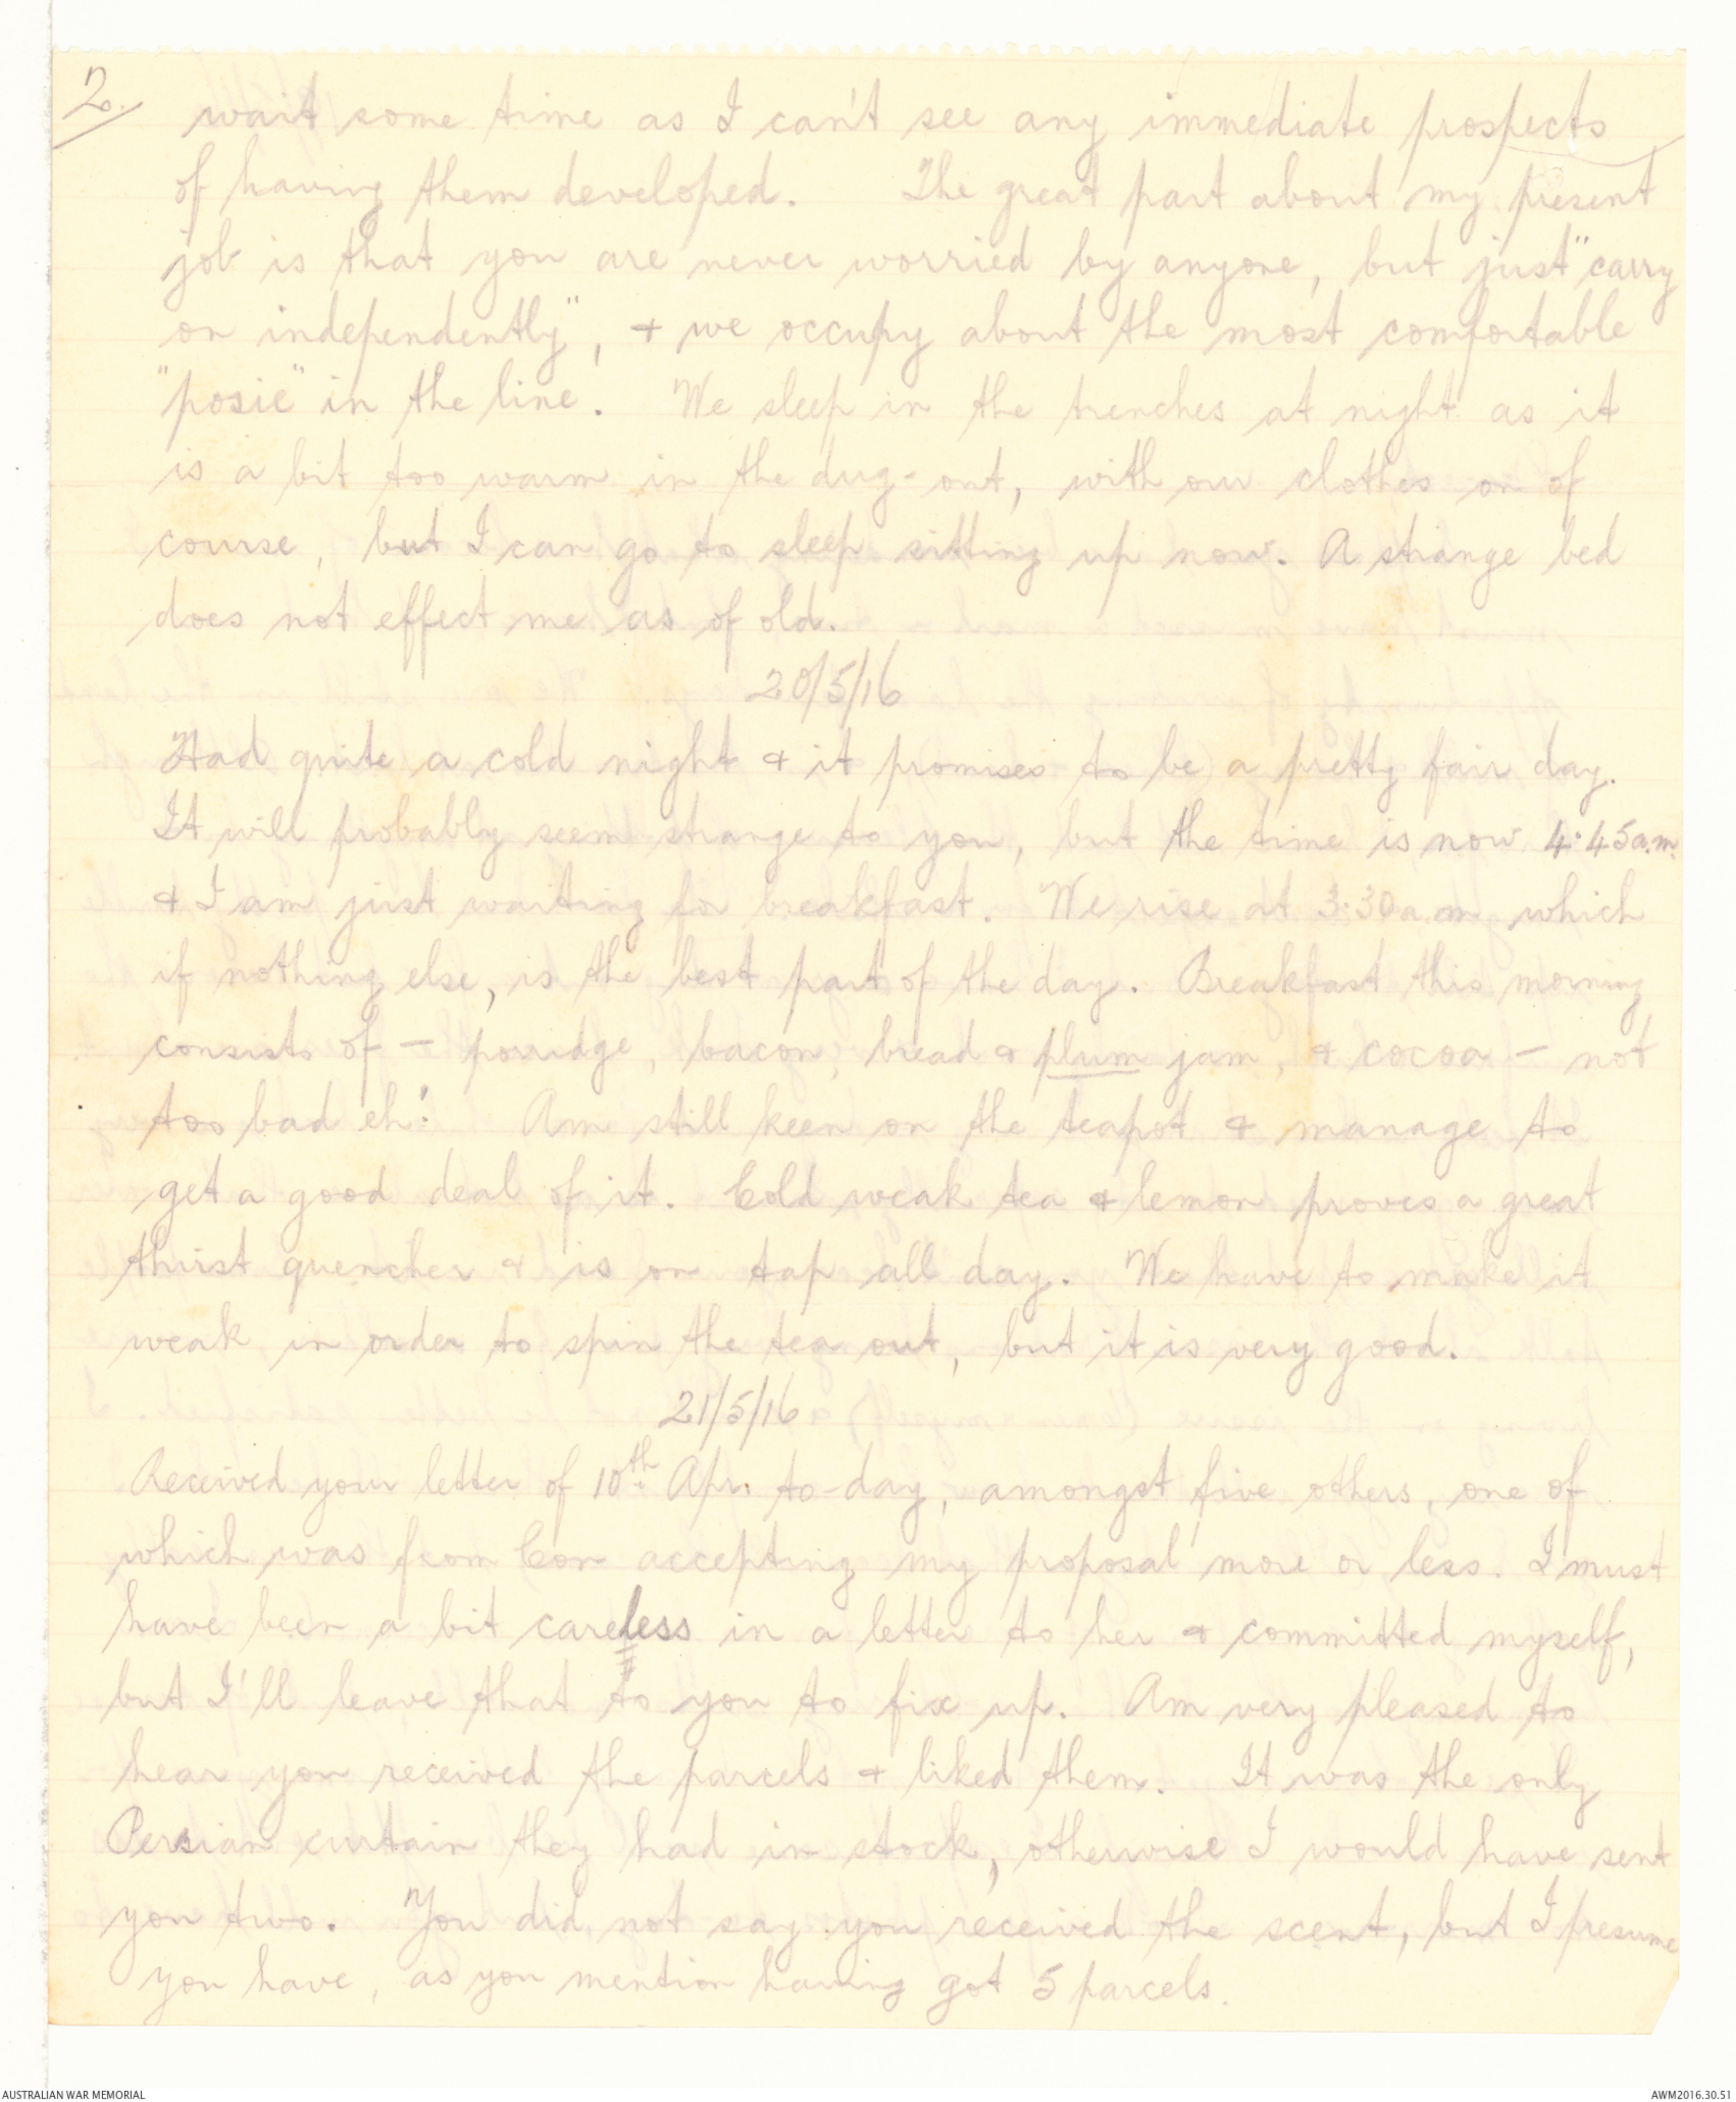 2.
wait some time as I can't see any immediate prospects
of having them developed. The great part about my present
job is that you are never worried by anyone, but just "carry
on independently", & we occupy about the most comfortable
"posie" in the line. We sleep in the trenches at night as it
is a bit too warm in the dug-out, with our clothes on of
course, but I can go to sleep sitting up now. A strange bed
does not effect me as of old.
20/5/16
Had quite a cold night & it promises to be a pretty fair day.
It will probably seem strange to you, but the time is now 4:45a.m.
& I am just waiting for breakfast. We rise at 3:30a.m which
if nothing else, is the best part of the day. Breakfast this morning
consists of - porridge, bacon, bread & plum jam, & cocoa - not
too bad eh! Am still keen on the teapot & manage to
get a good deal of it. Cold weak tea & lemon proves a great
thirst quencher & is on tap all day. We have to make it
weak in order to spin the tea out, but it is very good.
21/5/16
Received your letter of 10th Apr. to-day, amongst five others, one of
which was from Con accepting my proposal more or less. I must
have been a bit careless in a letter to her & committed myself,
but I'll leave that to you to fix up. Am very pleased to
hear you received the parcels & liked them. It was the only
Persian curtain they had in stock, otherwise I would have sent
you two. You did not say you received the scent, but I presume
you have, as you mention having got 5 parcels.
AUSTRALIAN WAR MEMORIAL
AWM2016.30.51